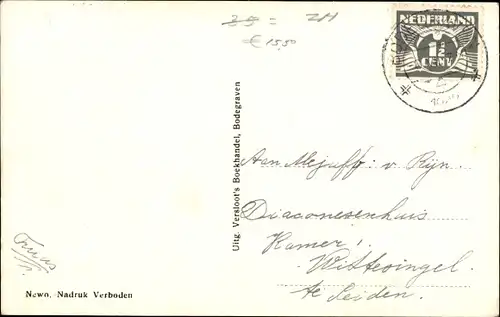 2H
€ 15,50
NEDERLAND
1½
CENT
Uitg. Versloot's Boekhandel, Bodegraven
Aan Mejuffr: v. Rijn.
Diaconesenhuis
Kamer 1.
Wittesingel.
te Leiden.
Truus
Newo, Nadruk Verboden